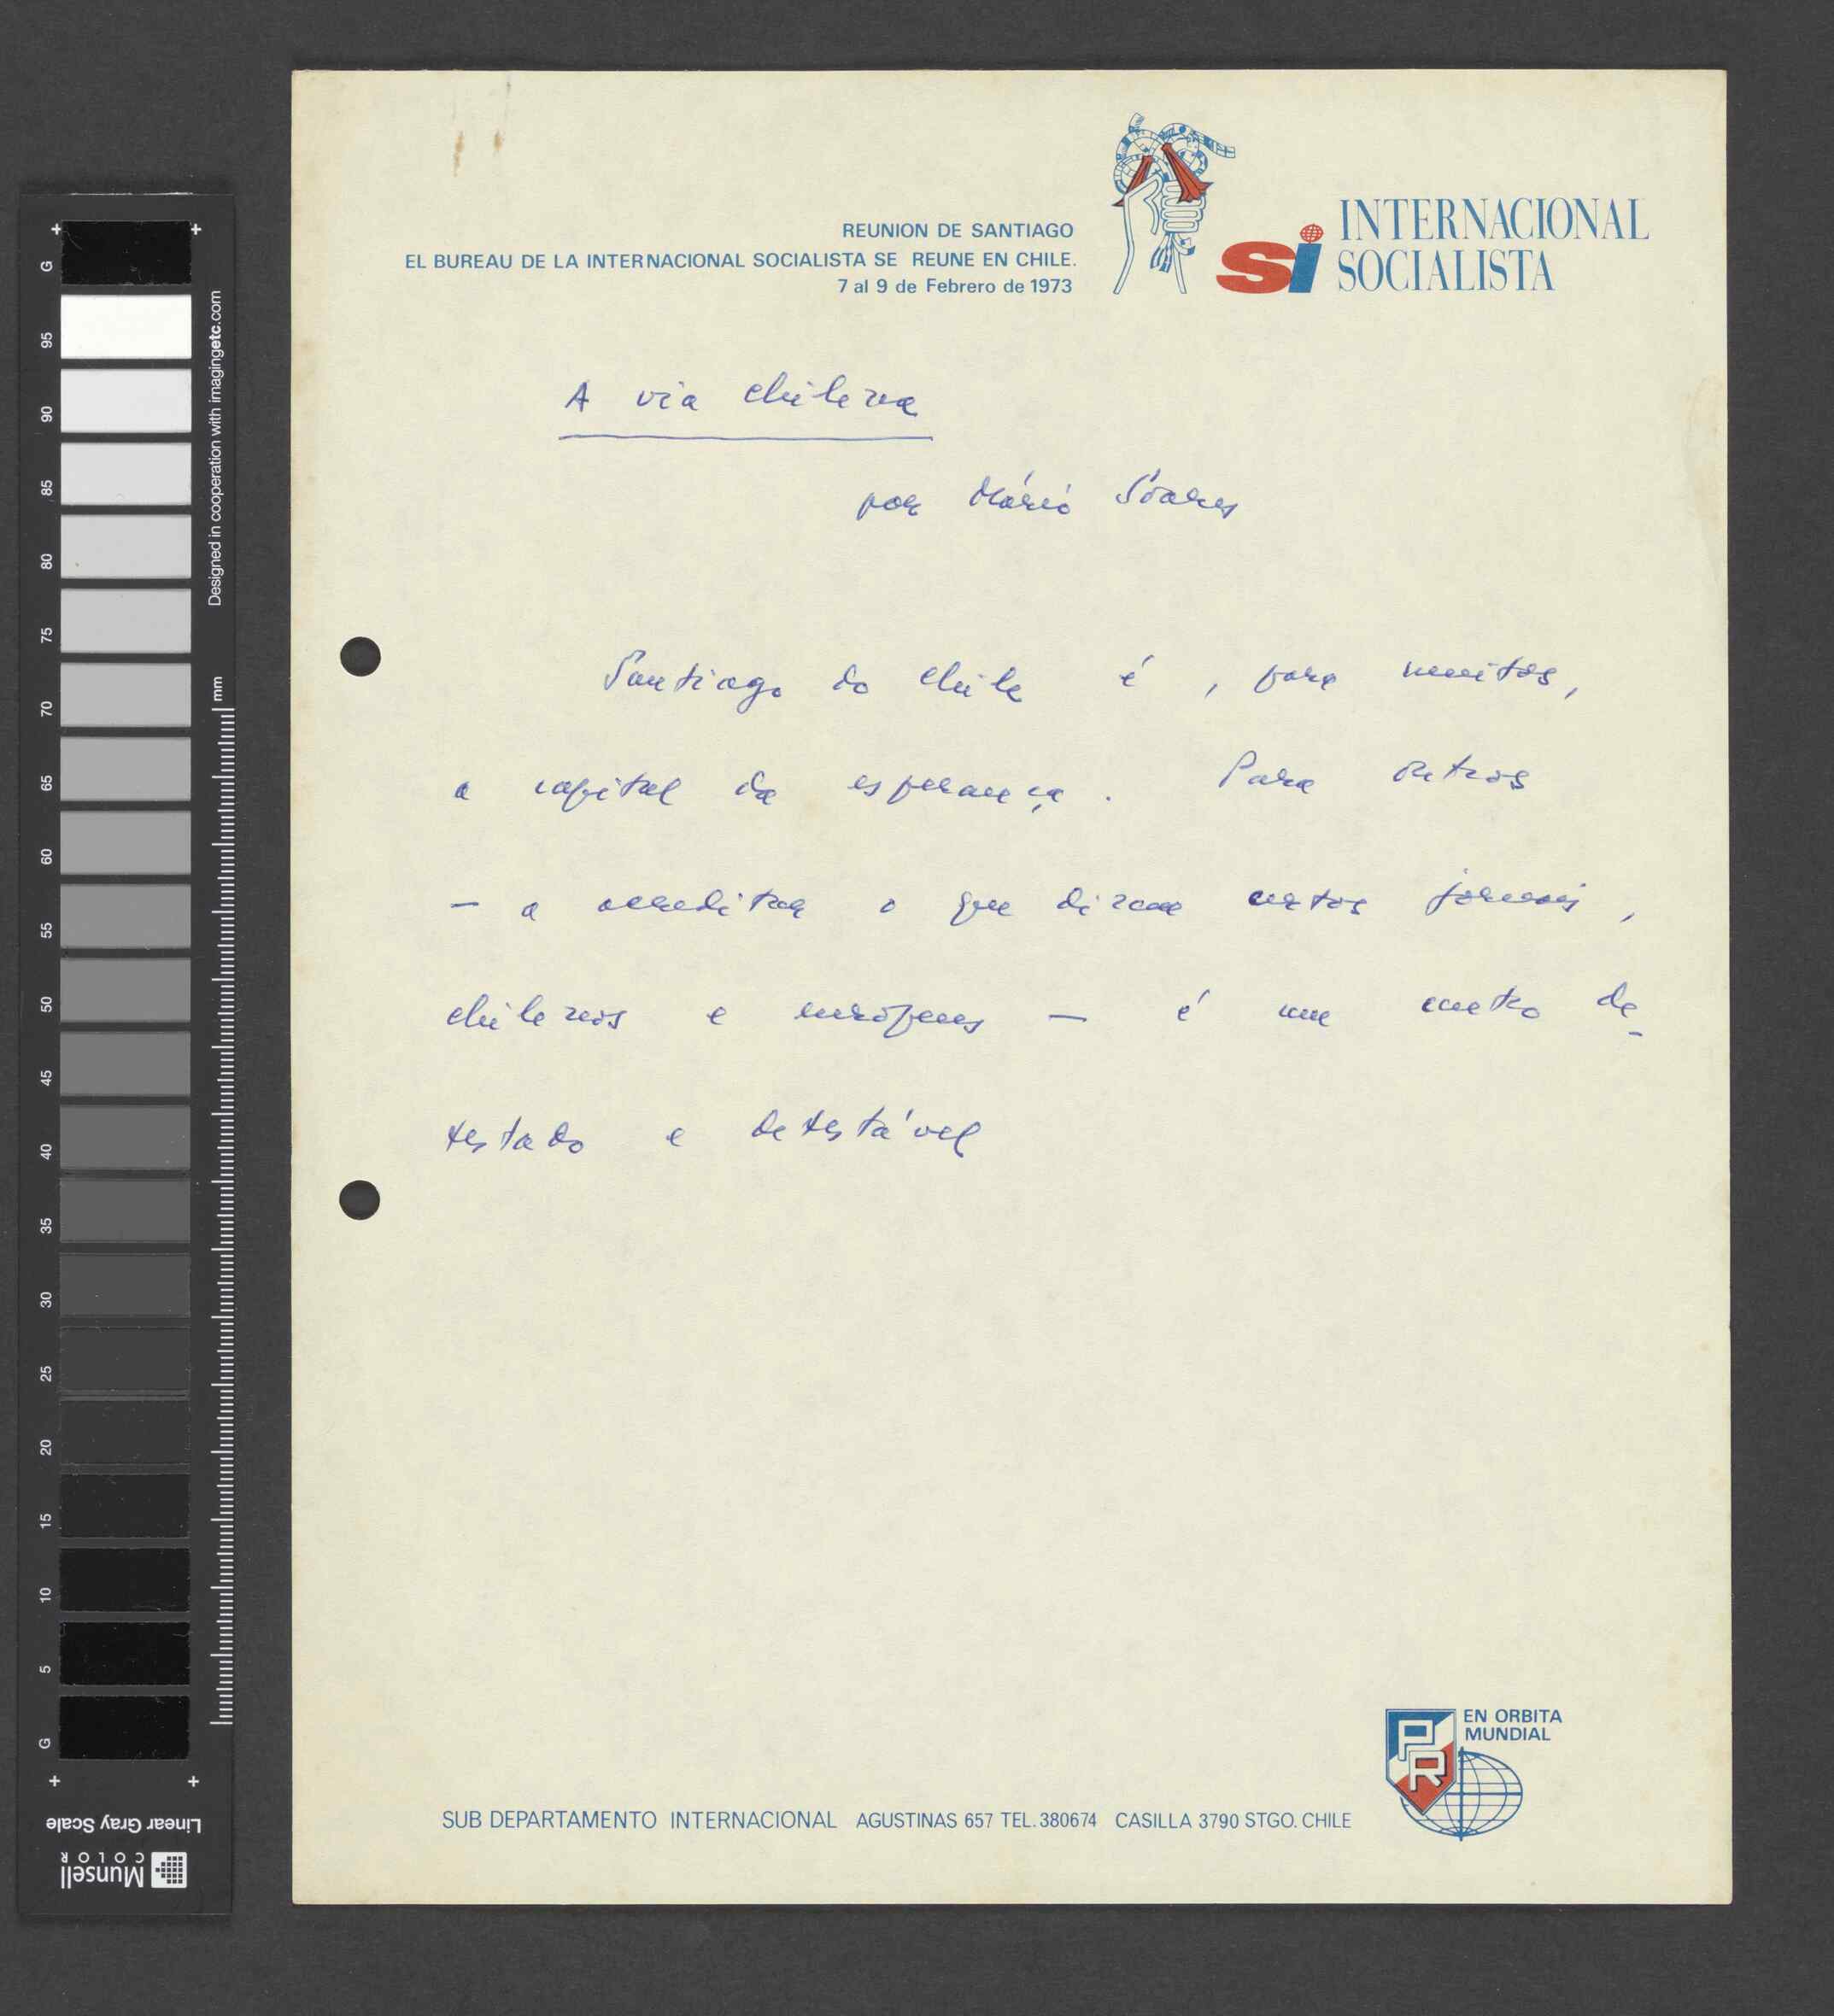 REUNION DE SANTIAGO
EL BUREAU DE LA INTERNACIONAL SOCIALISTA SE REUNE EN CHILE.
7 al 9 de Febrero de 1973
si INTERNACIONAL
SOCIALISTA
A via chilena
por Mário Soares
Santiago do Chile é, para muitos,
a capital da esperança. Para outros
— a acreditar o que dizem certos jornais,
chilenos e europeus — é um centro de-
testado e detestável
PR EN ORBITA
MUNDIAL
SUB DEPARTAMENTO INTERNACIONAL AGUSTINAS 657 TEL. 380674 CASILLA 3790 STGO. CHILE
G 95 90 85 80 75 70 65 60 55 50 45 40 35 30 25 20 15 10 5 G
Designed in cooperation with imagingetc.com
mm
Linear Gray Scale
Munsell
COLOR